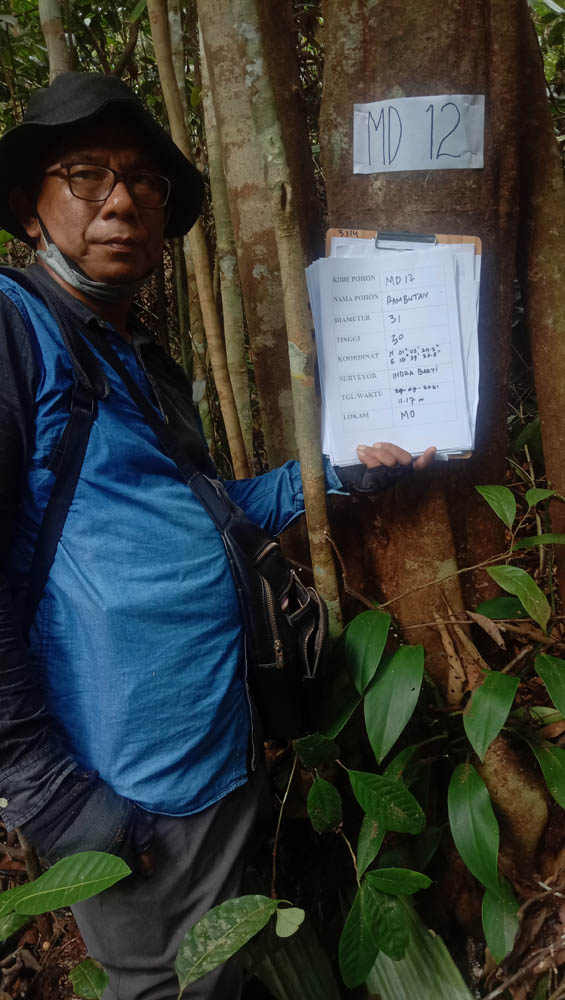 MD 12
KODE POHON MD 12
NAMA POHON RAMBUTAN
DIAMETER 31
TINGGI 30
KOORDINAT N 01° 02' 29.2"
SURVEYOR INDRA BAKTI
TGL/WAKTU 29-09-2021
11.17
LOKASI MD